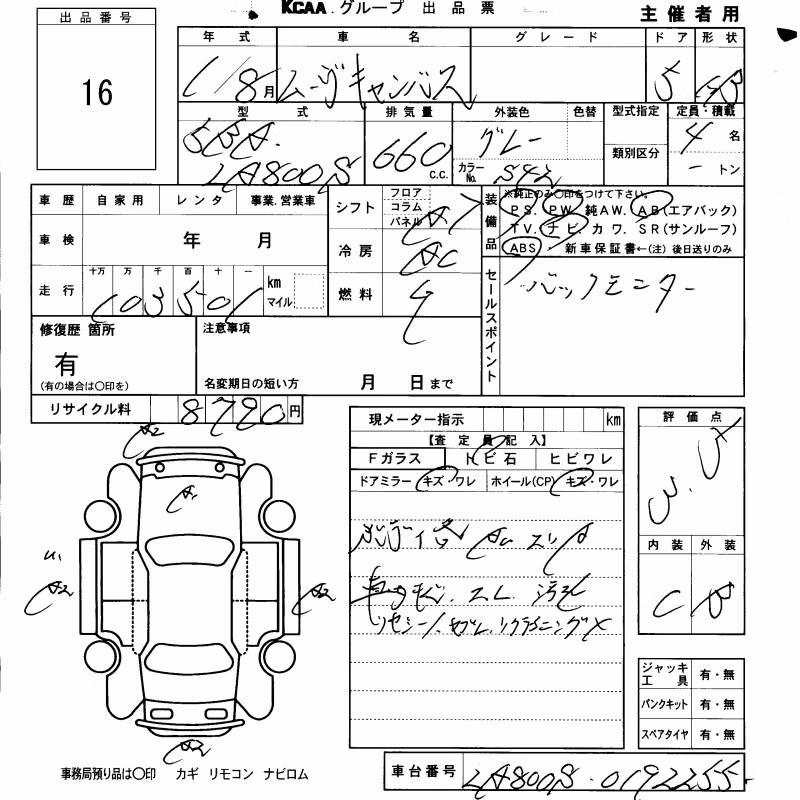 KCAA.グループ 出品票
主催者用
出品番号
16
年式 車名 グレード ドア 形状
1/8月 ムーヴキャンバス 5 HB
型式 排気量 外装色 色替 型式指定 定員・積載
5BA.
LA800S
660 c.c.
グレー
カラーNo. S42
類別区分
4名
－トン
車歴 自家用 レンタ 事業.営業車
シフト フロア コラム パネル AT
車検 年 月
冷房 AC
走行 十万 万 千 百 十 一
103501 km マイル
燃料 G
装備品 ※純正のみ〇印をつけて下さい。
PS. PW. 純AW. AB(エアバック)
TV. ナビ. カワ. SR(サンルーフ)
ABS. 新車保証書←(注) 後日送りのみ
セールスポイント バックモニター
修復歴 箇所
有
(有の場合は〇印を)
注意事項
名変期日の短い方 月 日まで
リサイクル料 8790円
現メーター指示 km
【査定員記入】
Fガラス トビ石 ヒビワレ
ドアミラー キズ・ワレ ホイール(CP) キズ・ワレ
スレ 汚れ
評価点
内装 外装
C B
A2
A1
A2
A2
A2
ジャッキ工具 有・無
パンクキット 有・無
スペアタイヤ 有・無
事務局預り品は〇印 カギ リモコン ナビロム
車台番号 LA800S-0192255